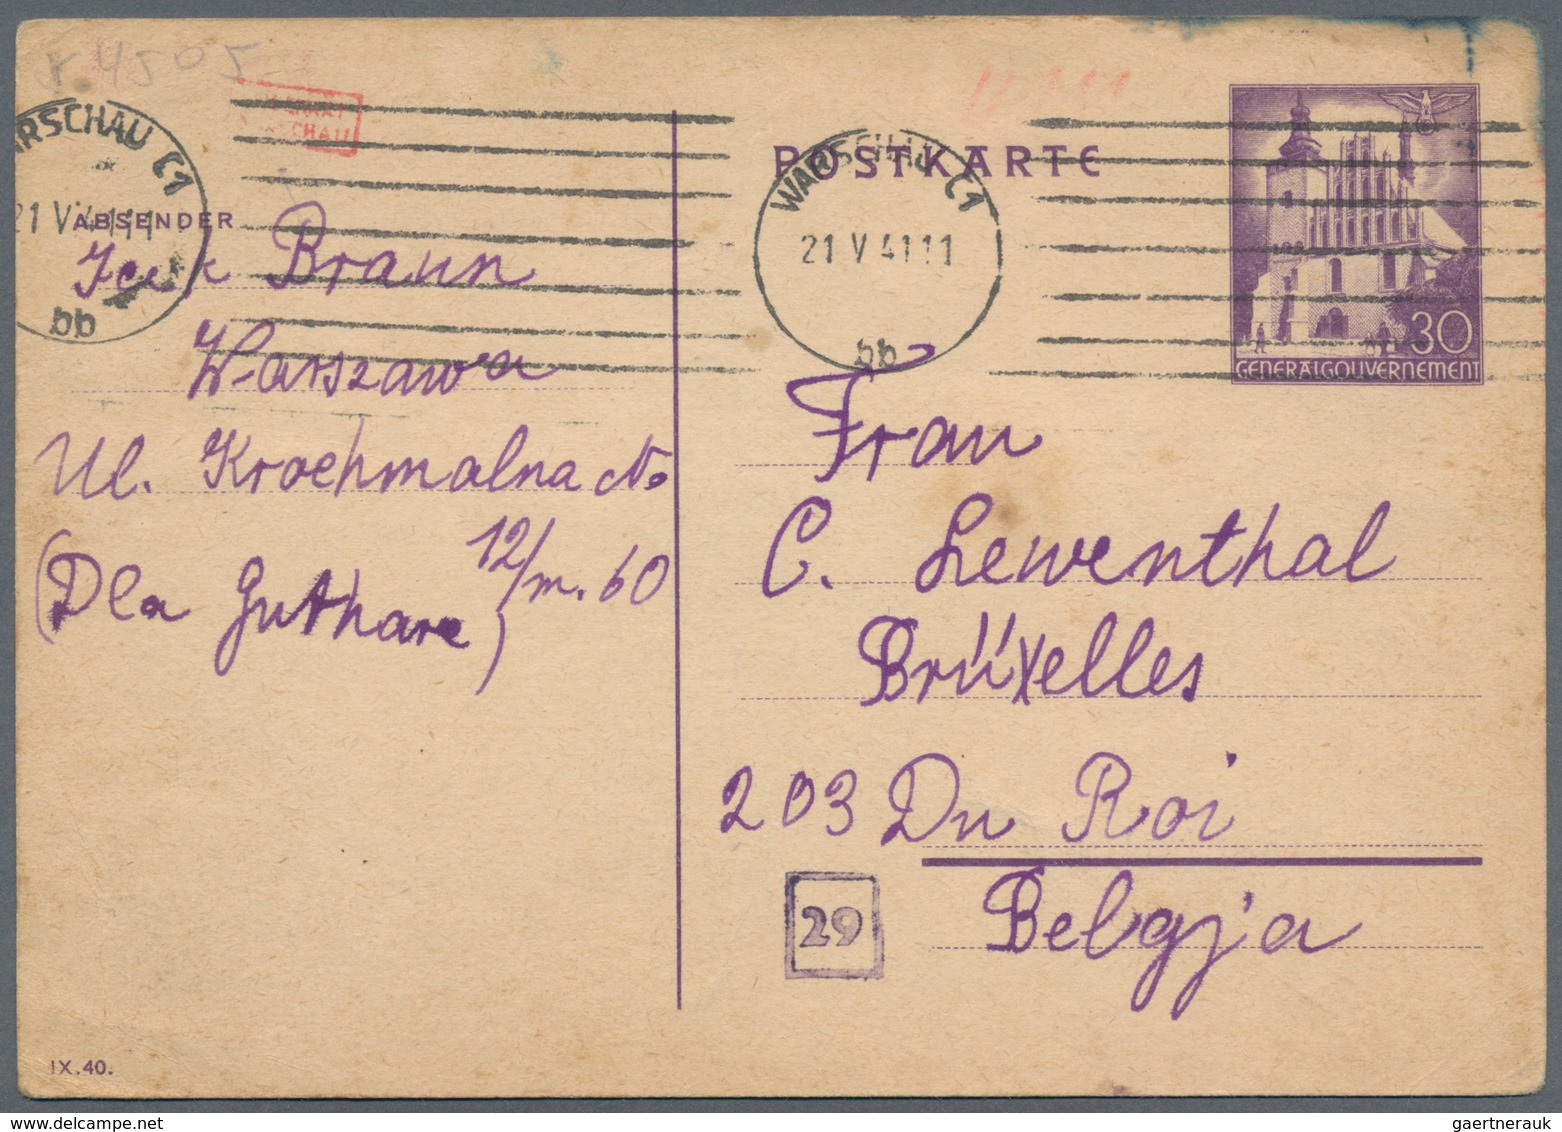 4505
WARSCHAU C1
21 V 41 11
bb
ABSENDER
Icek Braun
Warszawa
Ul. Krochmalna No
12/m. 60
(Dla Guthare)
IX.40.
POSTKARTE
WARSCHAU C1
21 V 41 11
bb
30
GENERALGOUVERNEMENT
Frau
C. Lewenthal
Brüxelles
203 Du Roi
Belgja
29
gaertnerauk